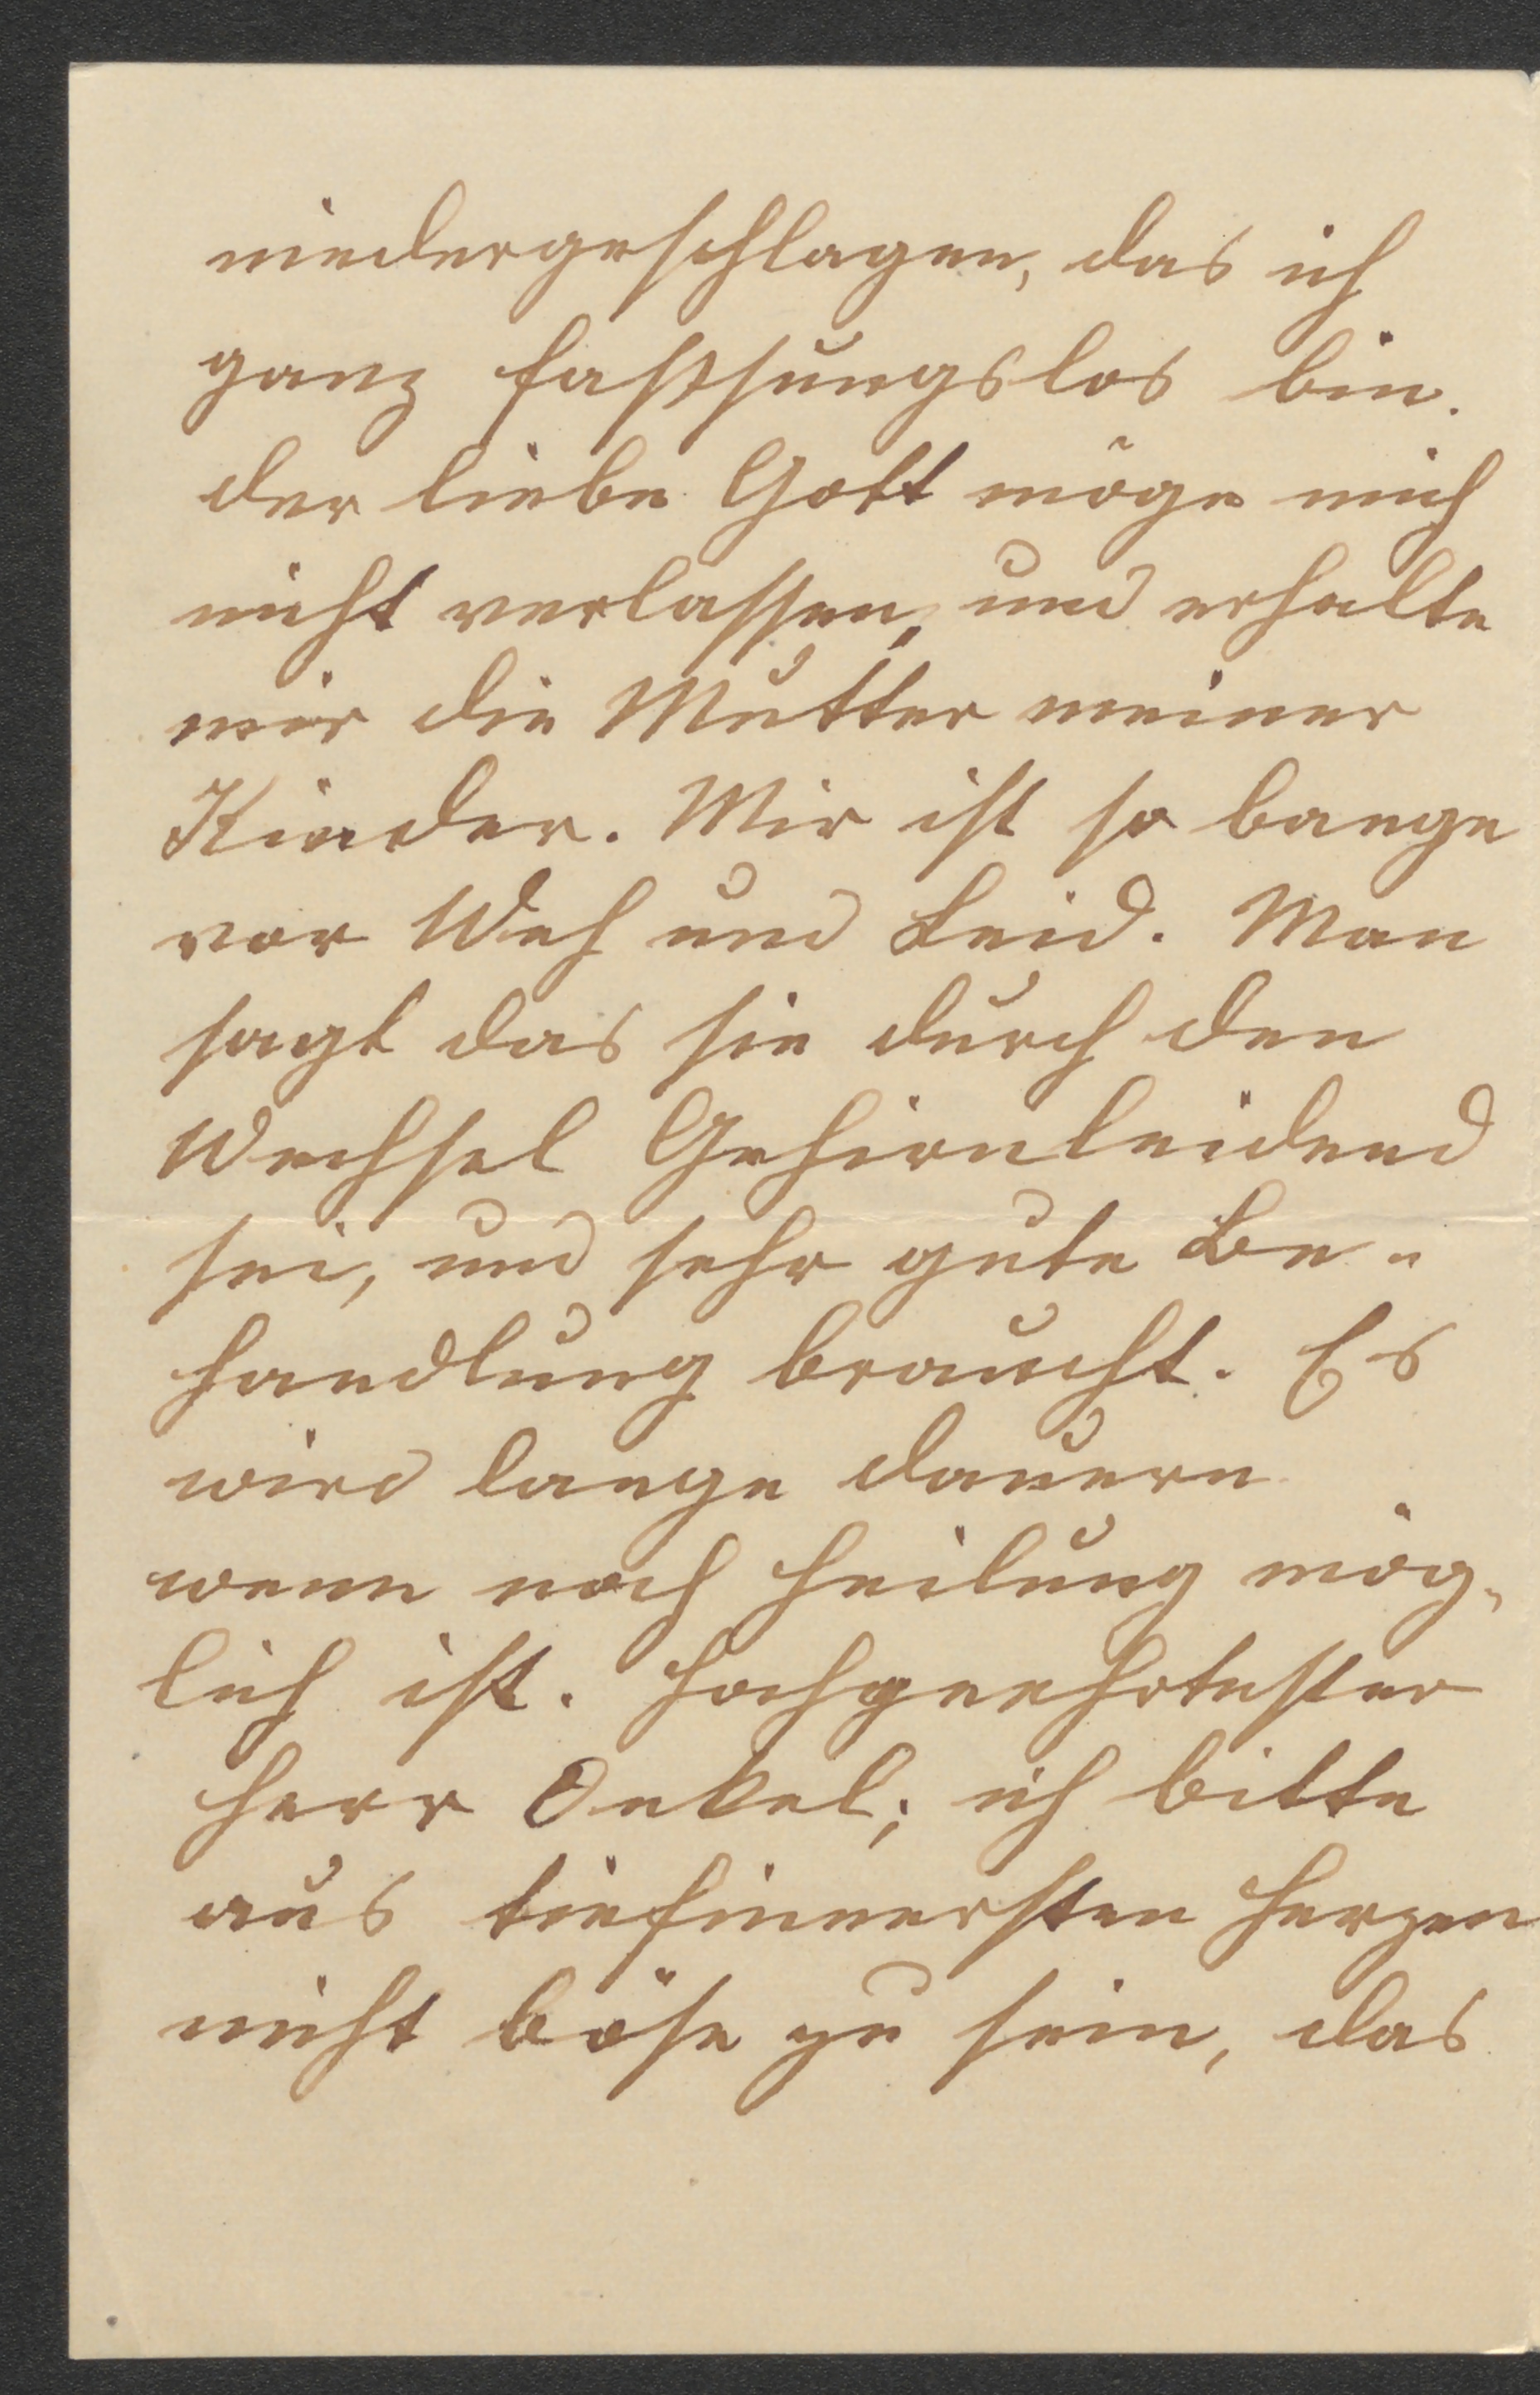 niedergeschlagen, das ich
ganz fassungslos bin.
der liebe Gott möge mich
nicht verlassen, und erhalte
mir die Mutter meiner
Kinder. Mir ist so bange
vor Weh und Leid. Man
sagt das sie durch den
Wechsel Gehirnleidend
sei, und sehr gute Be-
handlung braucht. Es
wird lange dauern
wenn noch Heilung mög-
lich ist. Hochgeehrtester
Herr Onkel; ich bitte
aus tiefinnersten Herzen
nicht böse zu sein, das